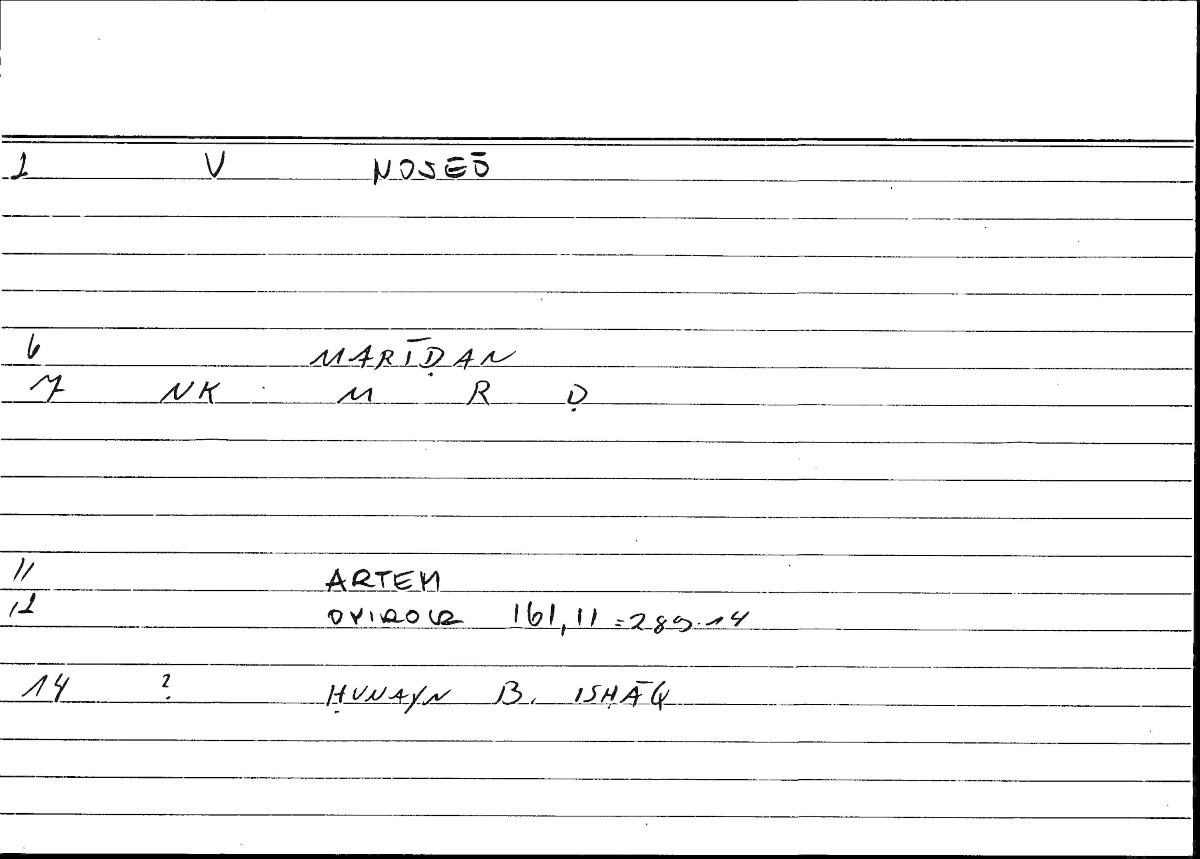 1 V NOSEŌ
6 MARĪḌAN
7 NK M R Ḍ
11 ARTEM
12 161,11 = 289.14
14 ? ḤUNAYN B. ISḤĀQ